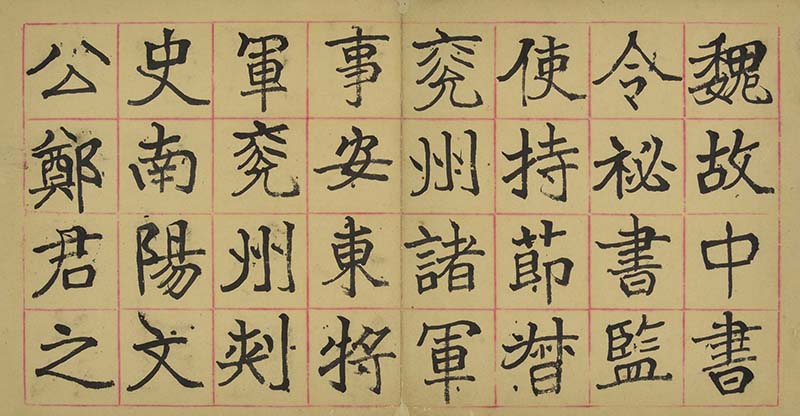 魏故中書
令祕書監
使持節督
兖州諸軍
事安東將
軍兖州刾
史南陽文
公鄭君之